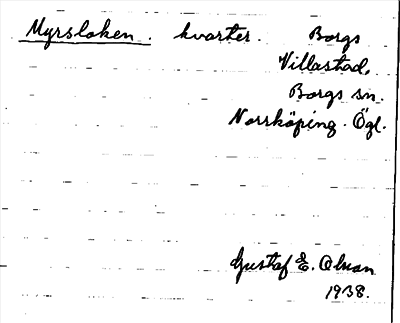 Myrsloken. kvarter. Borgs
Villastad,
Borgs sn.
Norrköping. Ögl.
Gustaf E. Olson
1938.